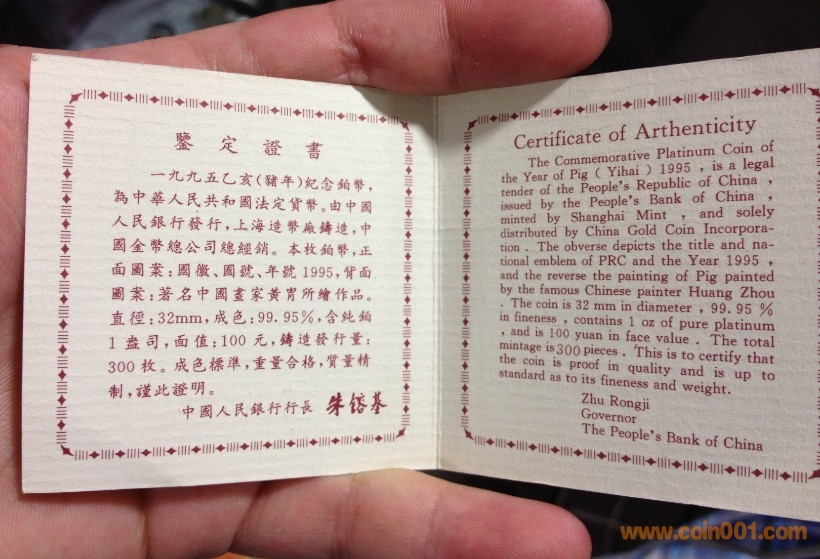 鑒定證書
一九九五乙亥(豬年)紀念鉑幣,
為中華人民共和國法定貨幣。由中國
人民銀行發行,上海造幣廠鑄造,中
國金幣總公司總經銷。本枚鉑幣,正
面圖案:國徽、國號、年號1995,背面
圖案:著名中國畫家黃冑所繪作品。
直徑:32mm,成色:99.95%,含純鉑
1盎司,面值:100元,鑄造發行量:
300枚。成色標準,重量合格,質量精
制,謹此證明。
中國人民銀行行長 朱鎔基
Certificate of Arthenticity
The Commemorative Platinum Coin of
the Year of Pig ( Yihai ) 1995 , is a legal
tender of the People's Republic of China ,
issued by the People's Bank of China ,
minted by Shanghai Mint , and solely
distributed by China Gold Coin Incorpora-
tion . The obverse depicts the title and na-
tional emblem of PRC and the Year 1995 ,
and the reverse the painting of Pig painted
by the famous Chinese painter Huang Zhou
. The coin is 32 mm in diameter , 99. 95 %
in fineness , contains 1 oz of pure platinum
, and is 100 yuan in face value . The total
mintage is 300 pieces . This is to certify that
the coin is proof in quality and is up to
standard as to its fineness and weight.
Zhu Rongji
Governor
The People's Bank of China
www.coin001.com